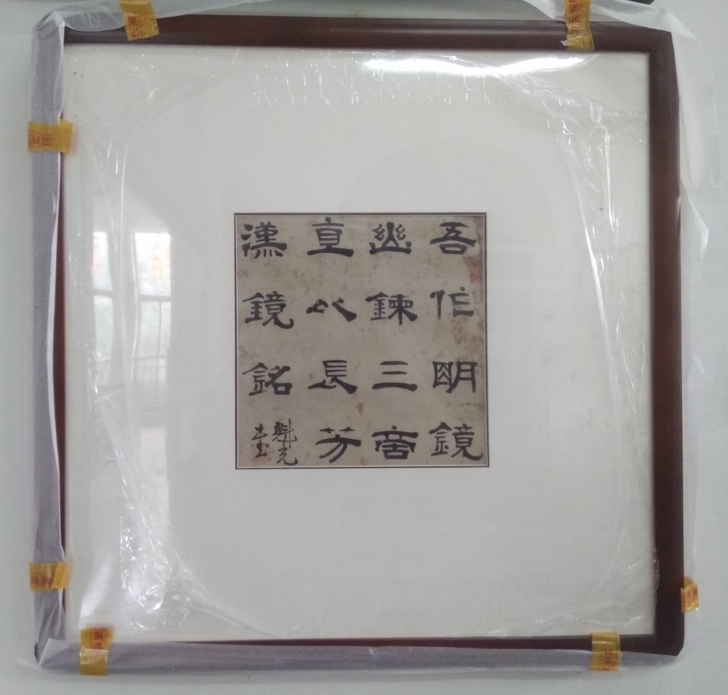 吾作明鏡
幽鍊三商
宜以長芳
漢鏡銘
魁光